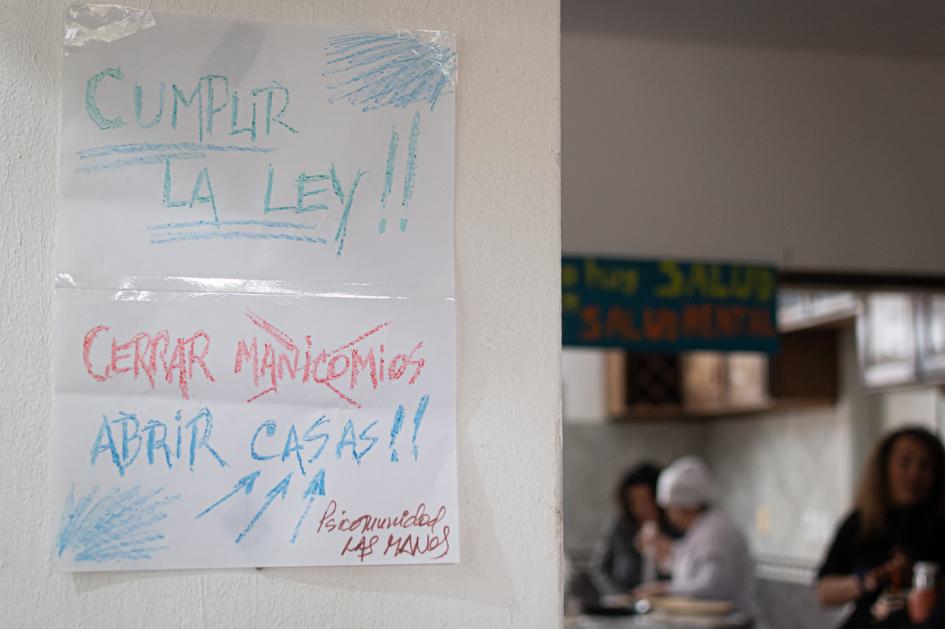 CUMPLIR
LA LEY!!
CERRAR MANICOMIOS
ABRIR CASAS!!
Psicomunidad
LAS MANOS
o hay SALUD
SALUD MENTAL